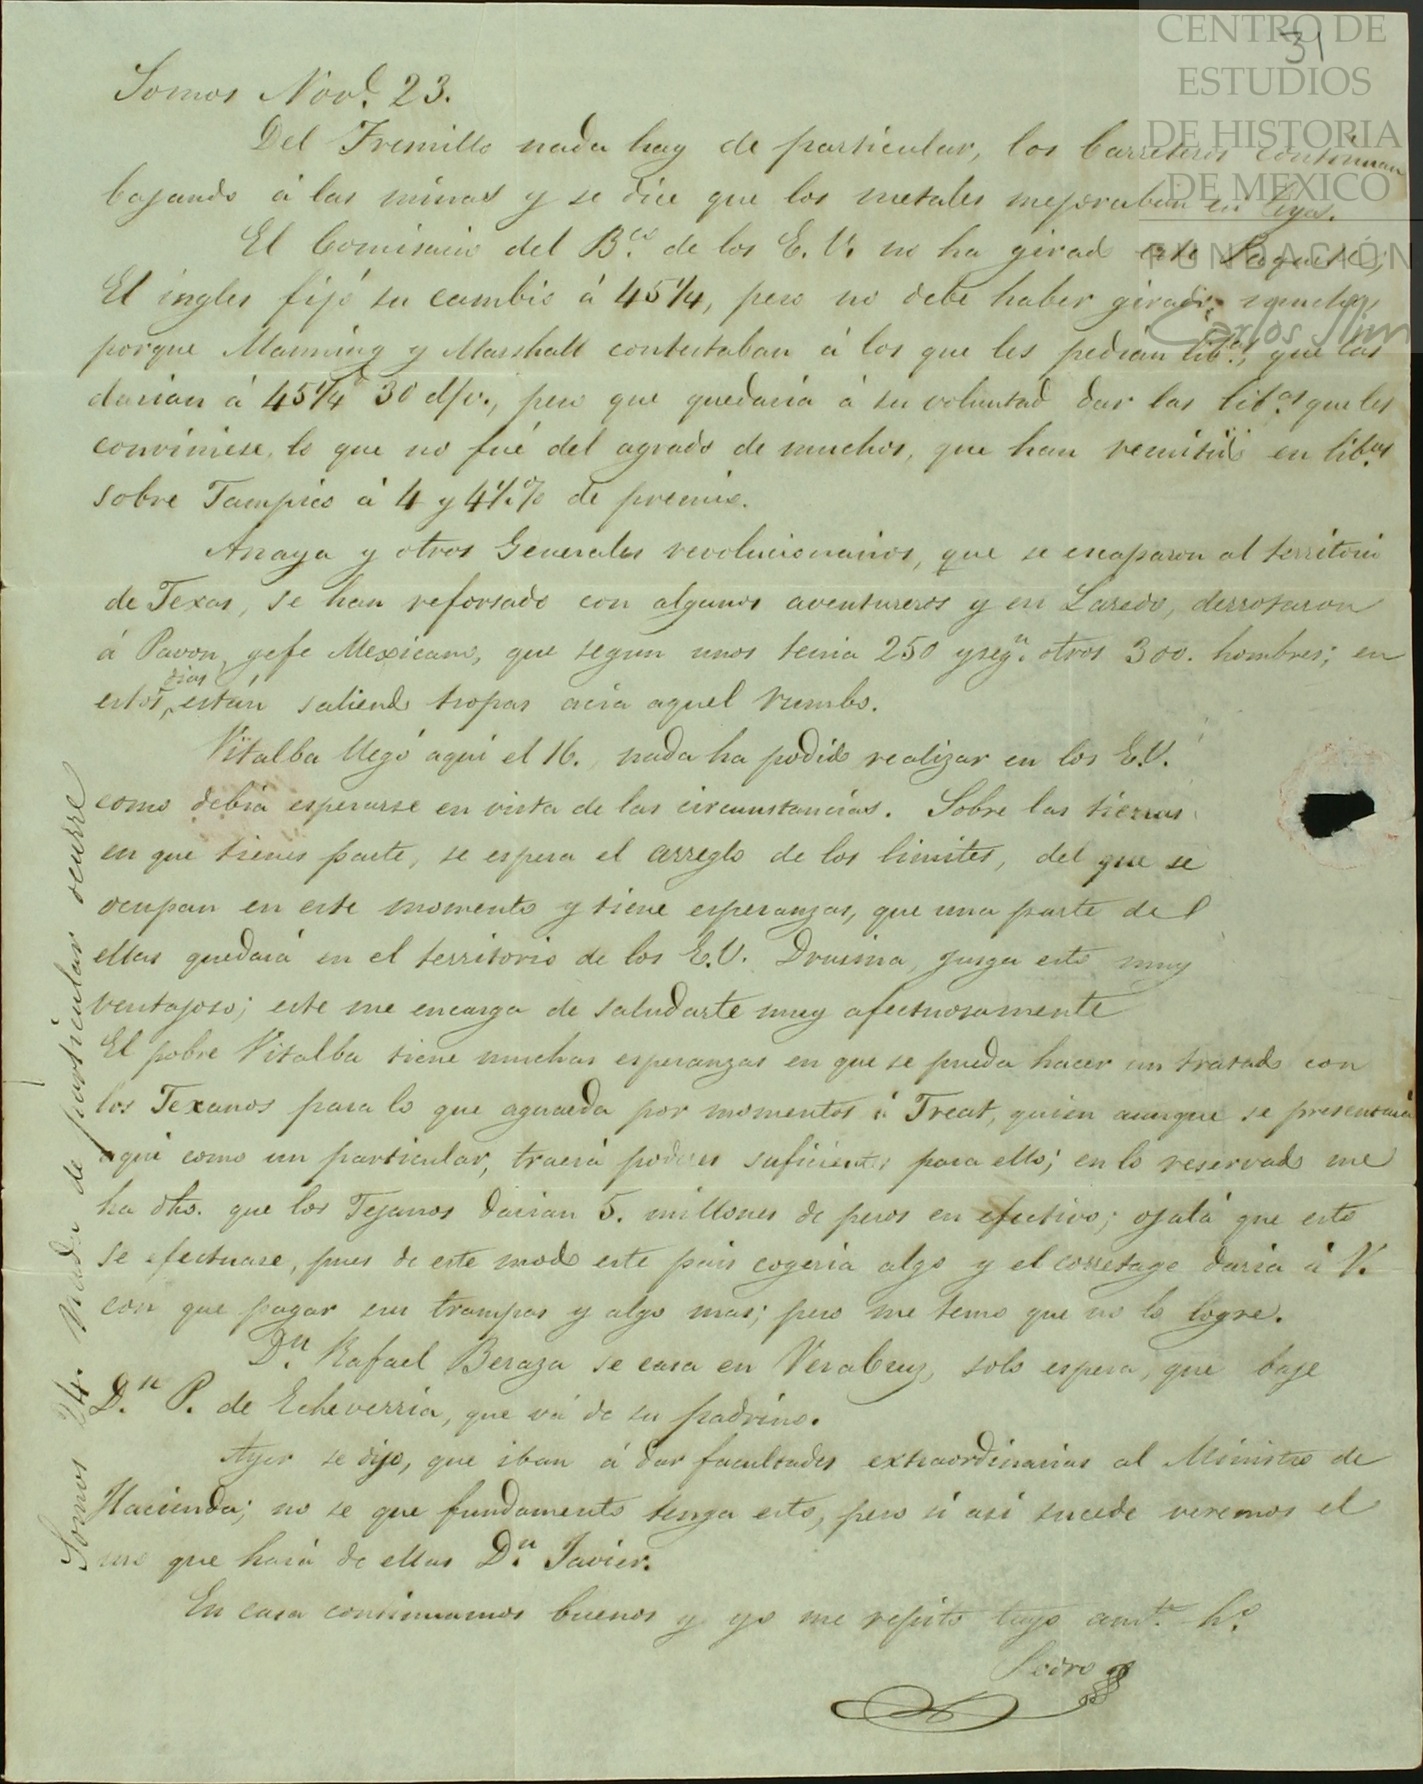 CENTRO DE
ESTUDIOS
DE HISTORIA
DE MEXICO
FUNDACIÓN
Carlos Slim
31
Somos Nov.e 23.
Del Fresnillo nada hay de particular, los barreteros continuan
bajando á las minas y se dice que los metales mejoraban en leyes.
El Comisario del B.co de los E. U. no ha girado este Paquete;
El ingles fijó su cambio á 45 1/4, pero no debe haber girado mucho,
porque Manning y Marshall contestaban á los que les pedian lib.s, que las
darian á 45 1/4 30 d/v., pero que quedaria á su voluntad dar las lib.as que les
conviniese, lo que no fué del agrado de muchos, que han remitido en lib.as
sobre Tampico á 4 y 4 1/2 % de premio.
Anaya y otros Generales revolucionarios, que se escaparon al territorio
de Texas, se han reforsado con algunos aventureros y en Laredo, derrotaron
á Pavon, gefe Mexicano, que segun unos tenia 250 y seg.n otros 300. hombres; en
estos dias están saliendo tropas acia aquel rumbo.
Vitalba llegó aqui el 16., nada ha podido realizar en los E.U.
como debia esperarse en vista de las circunstancias. Sobre las tierras
en que tienes parte, se espera el arreglo de los limites, del que se
ocupan en este momento y tiene esperanzas, que una parte de
ellas quedará en el territorio de los E.U. Drusina, jusga esto muy
ventajoso; este me encarga de saludarte muy afectuosamente
El pobre Vitalba tiene muchas esperanzas en que se pueda hacer un tratado con
los Texanos para lo que aguarda por momentos á Treat, quien aunque se presentará
aqui como un particular, traerá poderes suficientes para ello; en lo reservado me
ha dho. que los Tejanos darian 5. millones de pesos en efectivo; ojalá que esto
se efectuase, pues de este modo este pais cogeria algo y el corretage daria á V.
con que pagar sus trampas y algo mas; pero me temo que no lo logre.
D.n Rafael Beraza se casa en Veracruz, solo espera, que baje
D.n P. de Echeverria, que vá de su padrino.
Ayer se dijo, que iban á dar facultades extraordinarias al Ministro de
Hacienda; no se que fundamento tenga esto, pero si asi sucede veremos el
uso que hará de ellas D.n Javier.
En casa continuamos buenos y yo me repito tuyo am.te h.o
Pedro
Somos 24. Nada de particular ocurre